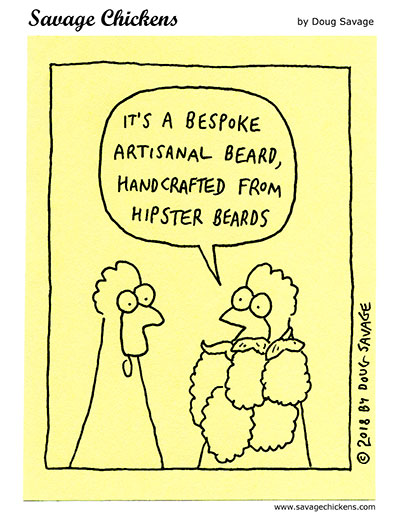 Savage Chickens
by Doug Savage
IT'S A BESPOKE
ARTISANAL BEARD,
HANDCRAFTED FROM
HIPSTER BEARDS
© 2018 BY DOUG SAVAGE
www.savagechickens.com